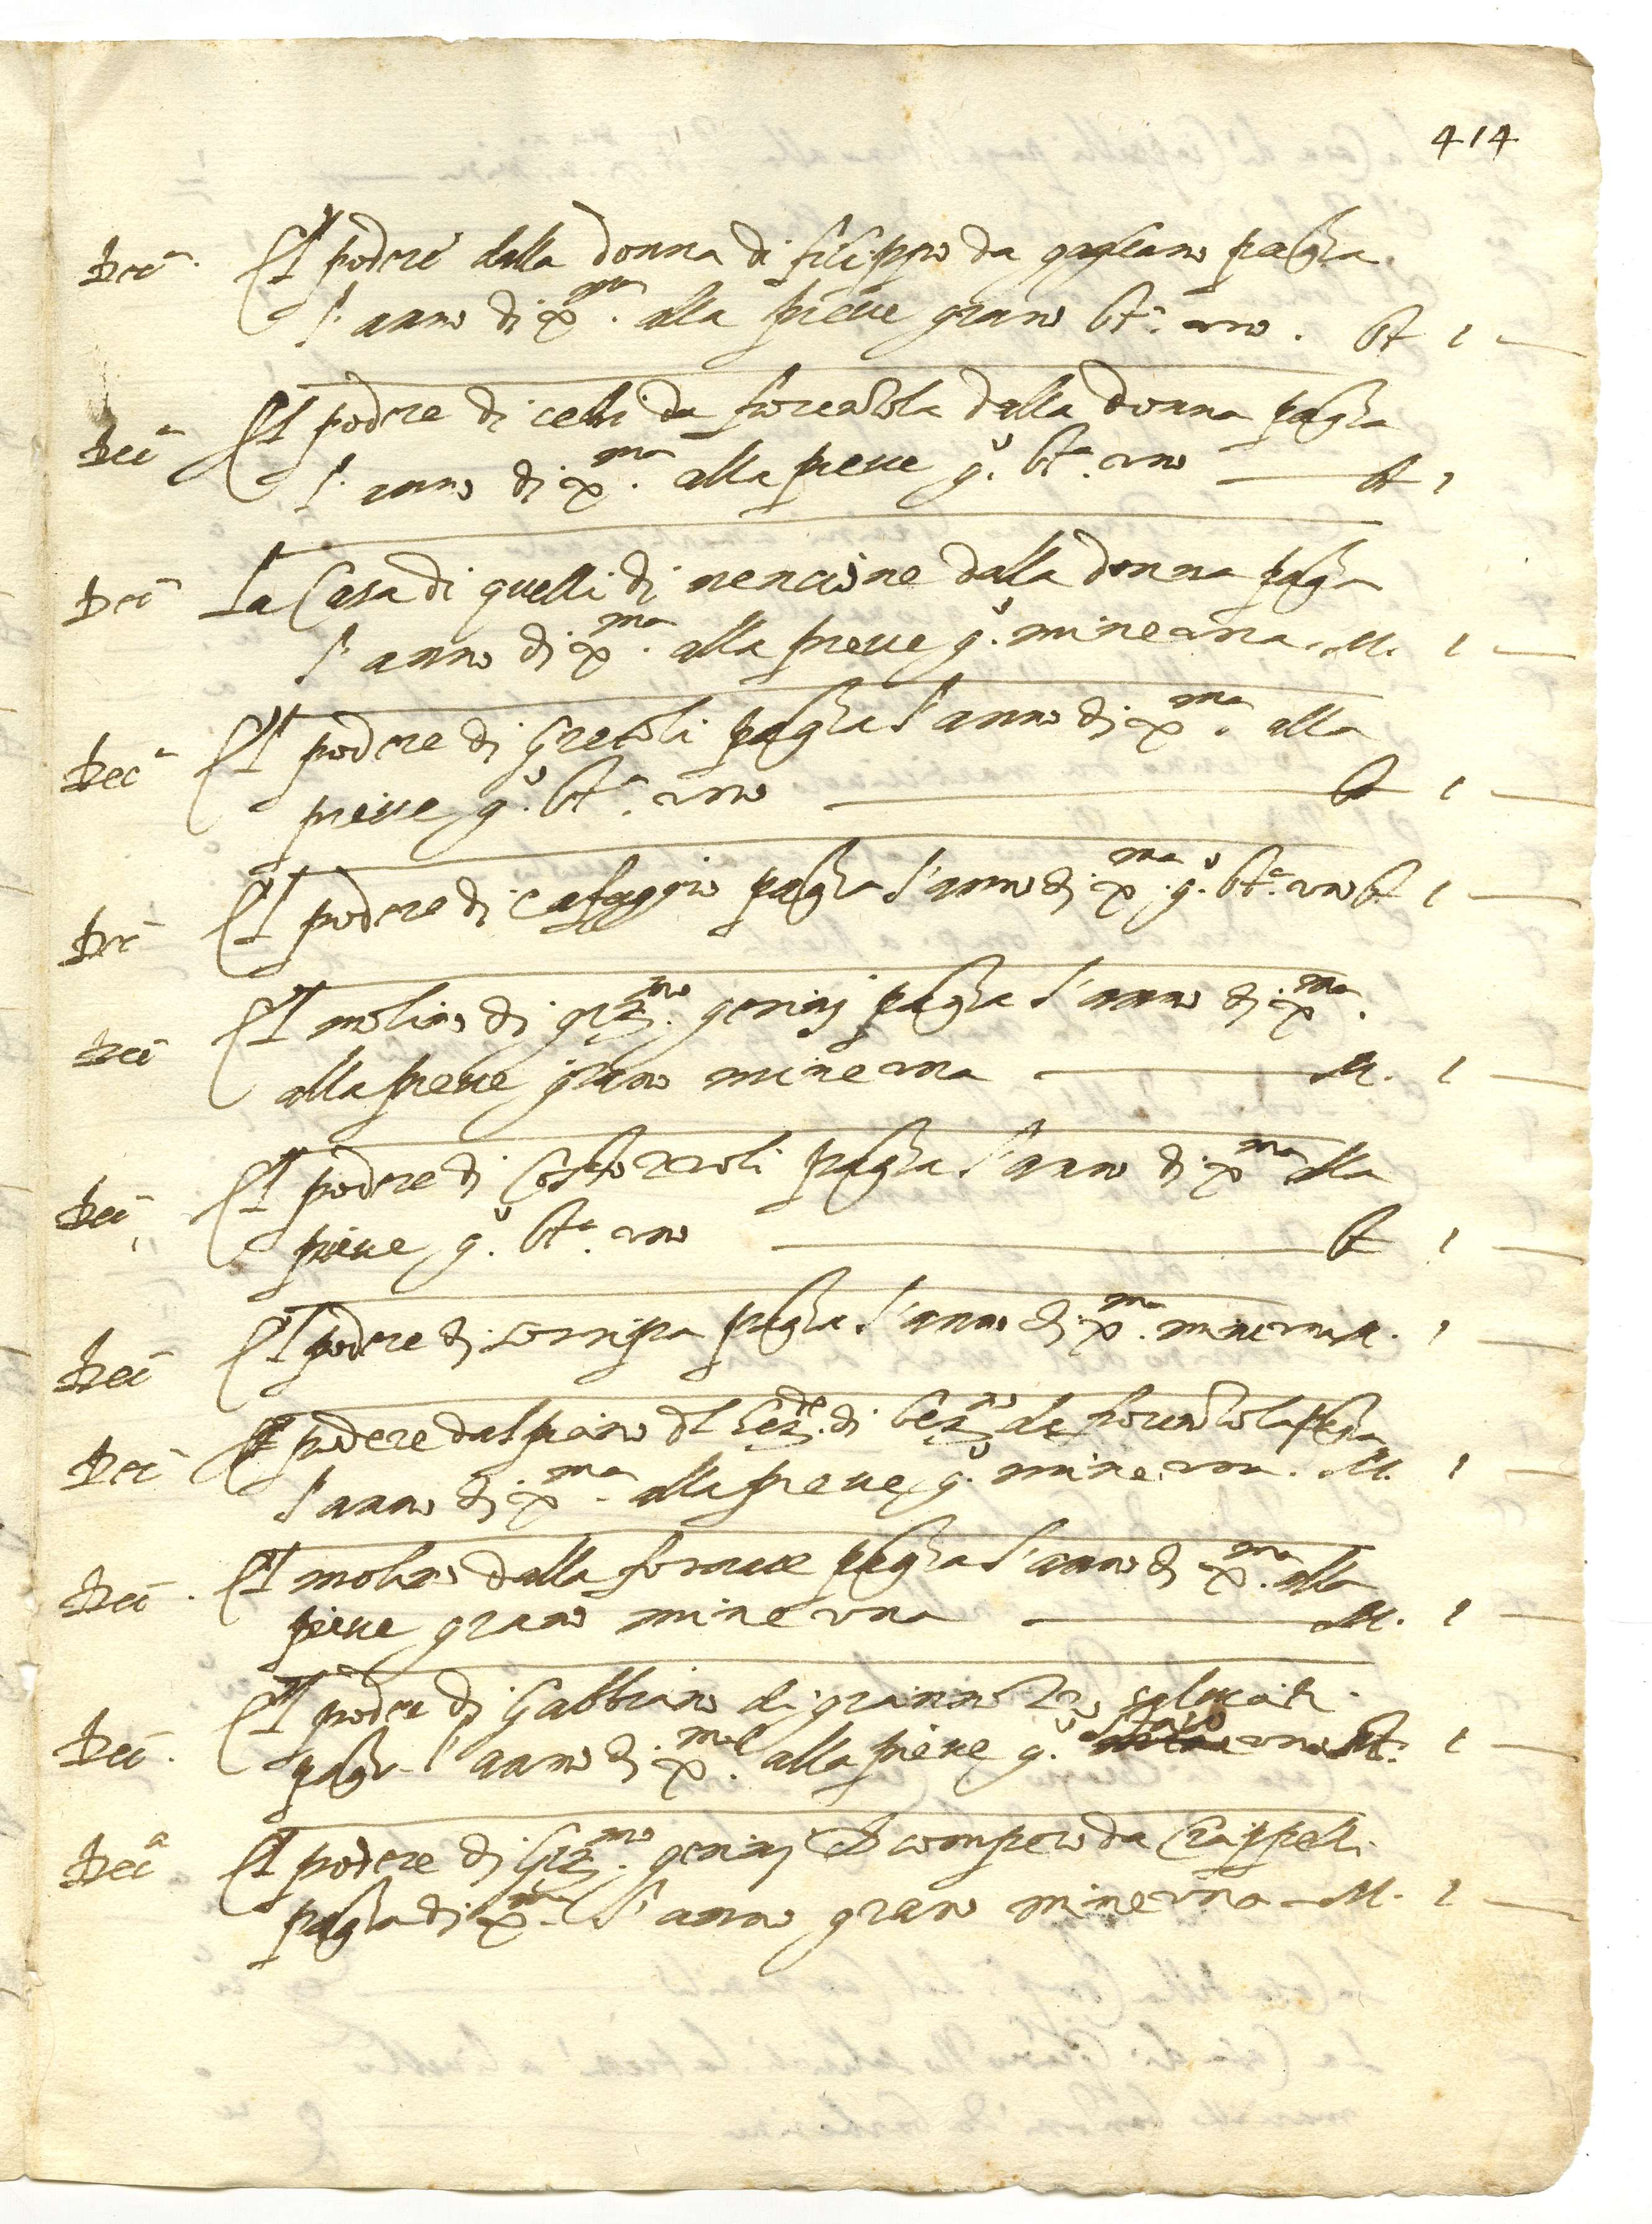 414
Deci^a. El podere dalla donna di filippo da gagliano pagha
l'anno di x^ma. alla pieve grano st^o. uno. St 1 —
Deci^a El podere di celli da fiorenzola dalla donna pagha
l'anno di x^ma. alla pieve g^o. st^o. uno — St 1
Deci^a La Casa di quelli di nencione dalla donna pagha
l'anno di x^ma. alla pieve g^o. mine una. M. 1 —
Deci^a El podere di Gretoli pagha l'anno di x^ma. alla
pieve g^o. st^o. uno — St 1 —
Deci^a El podere di cafaggio pagha l'anno di x^ma. g^o. st^o. uno St 1 —
Deci^a El molino di gir^mo. gerinj pagha l'anno di x^ma.
alla pieve grano mine una — M. 1 —
Deci^a El podere di pagha l'anno di x^ma alla
pieve g^o. st^o. uno — St 1 —
Deci^a El podere di pagha l'anno di x^ma. mine una M. 1 —
Deci^a El podere dal piano di da fiorenzola pagha
l'anno di x^ma. alla pieve g^o. mine una. M. 1 —
Deci^a. El molino dalla fornace pagha l'anno di x^ma. alla
pieve grano mine una — M. 1 —
Deci^a. El podere di Gabbiano di salucati.
pagha l'anno di x^ma. alla pieve g^o. staio uno St. 1 —
Deci^a El podere di Gir^mo. gerinj compero da
pagha di x^ma. l'anno grano mine una — M. 1 —